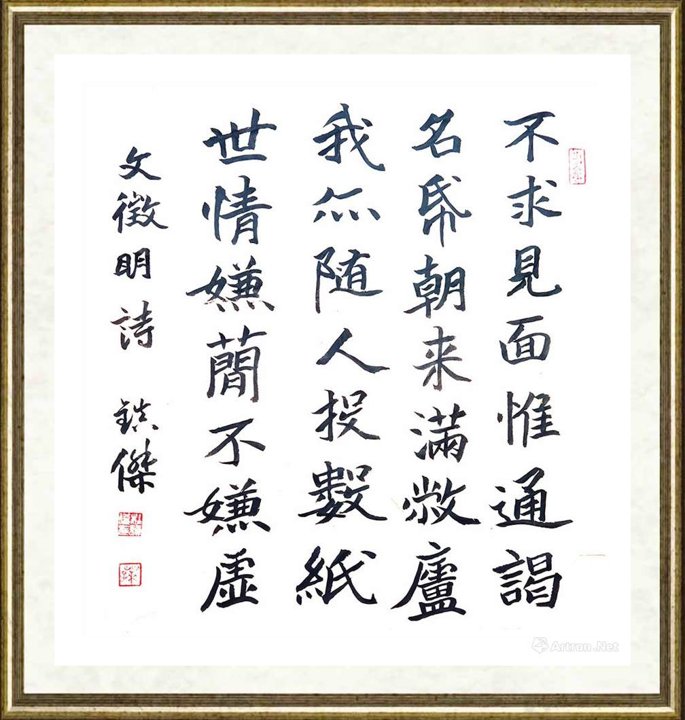 不求見面惟通謁
名帋朝来滿敝廬
我亦随人投數紙
世情嫌簡不嫌虛
文徵明詩 鎮傑
Artron.Net